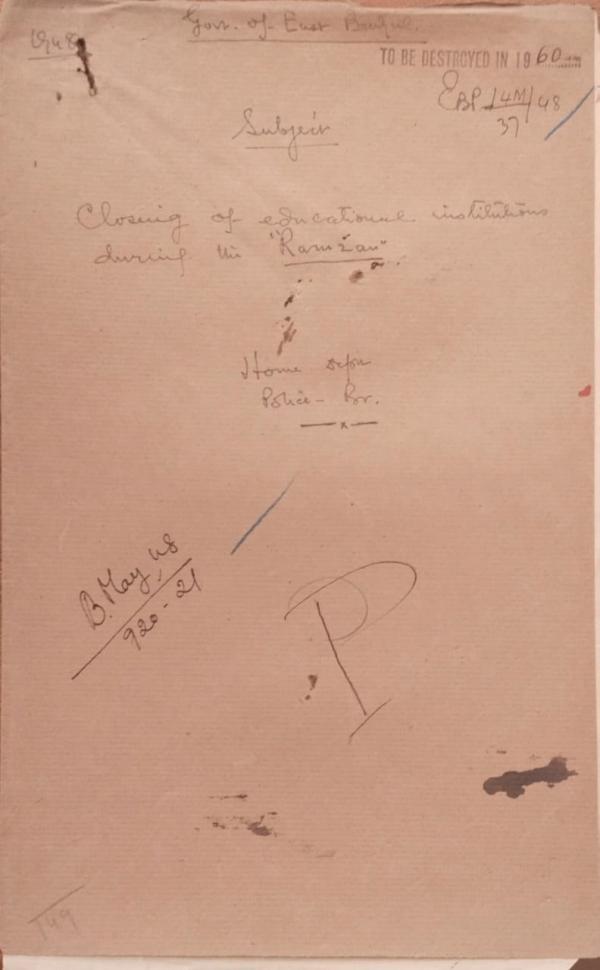 1948
Govt. of East Bengal.
TO BE DESTROYED IN 1960
EBP 14M/48
37
Subject
Closing of educational institutions
during the "Ramzan"
Home
Police - Br.
—x—
B. May, 48
920-21
P
149